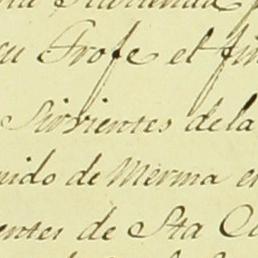 su Trofe el fin
Sirvientes de la
nido de Merma en
entes de Sta Ca